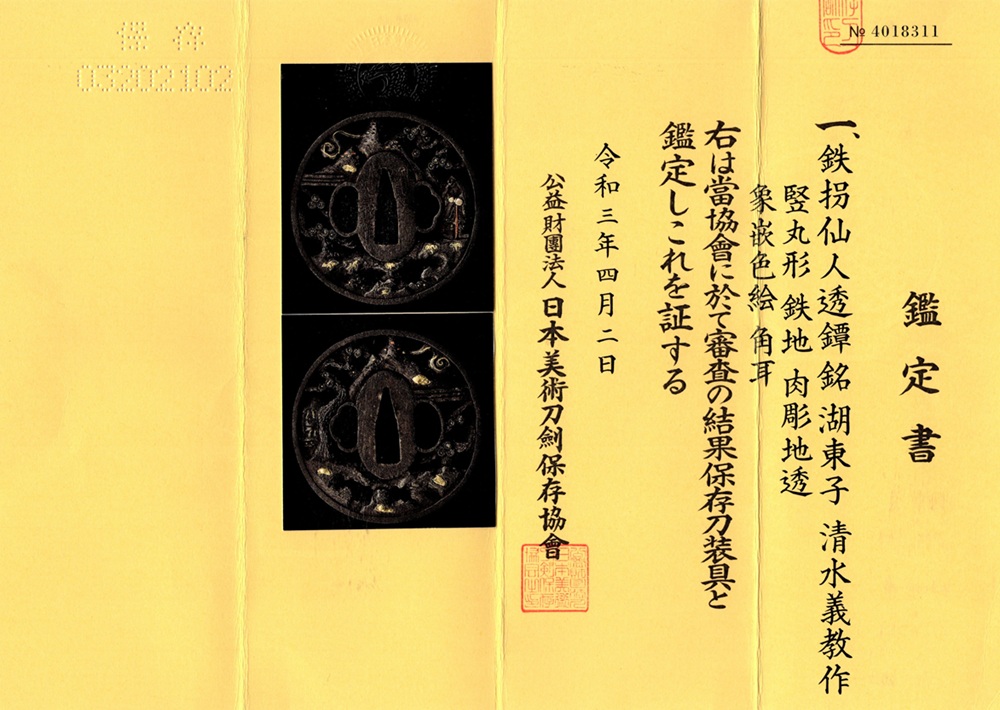 № 4018311
鑑定書
一、鉄拐仙人透鐔 銘 湖東子 清水義教作
竪丸形 鉄地 肉彫地透
象嵌色絵 角耳
右は當協會に於て審査の結果保存刀装具と
鑑定しこれを証する
令和三年四月二日
公益財團法人 日本美術刀劍保存協會
保存
03202102